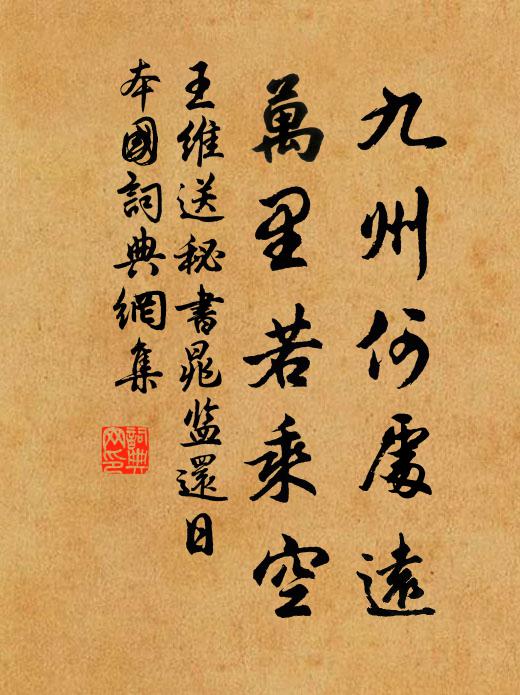 九州何處遠
萬里若乘空
王維送秘書晁監還日
本國詞典網集
詞典
网印